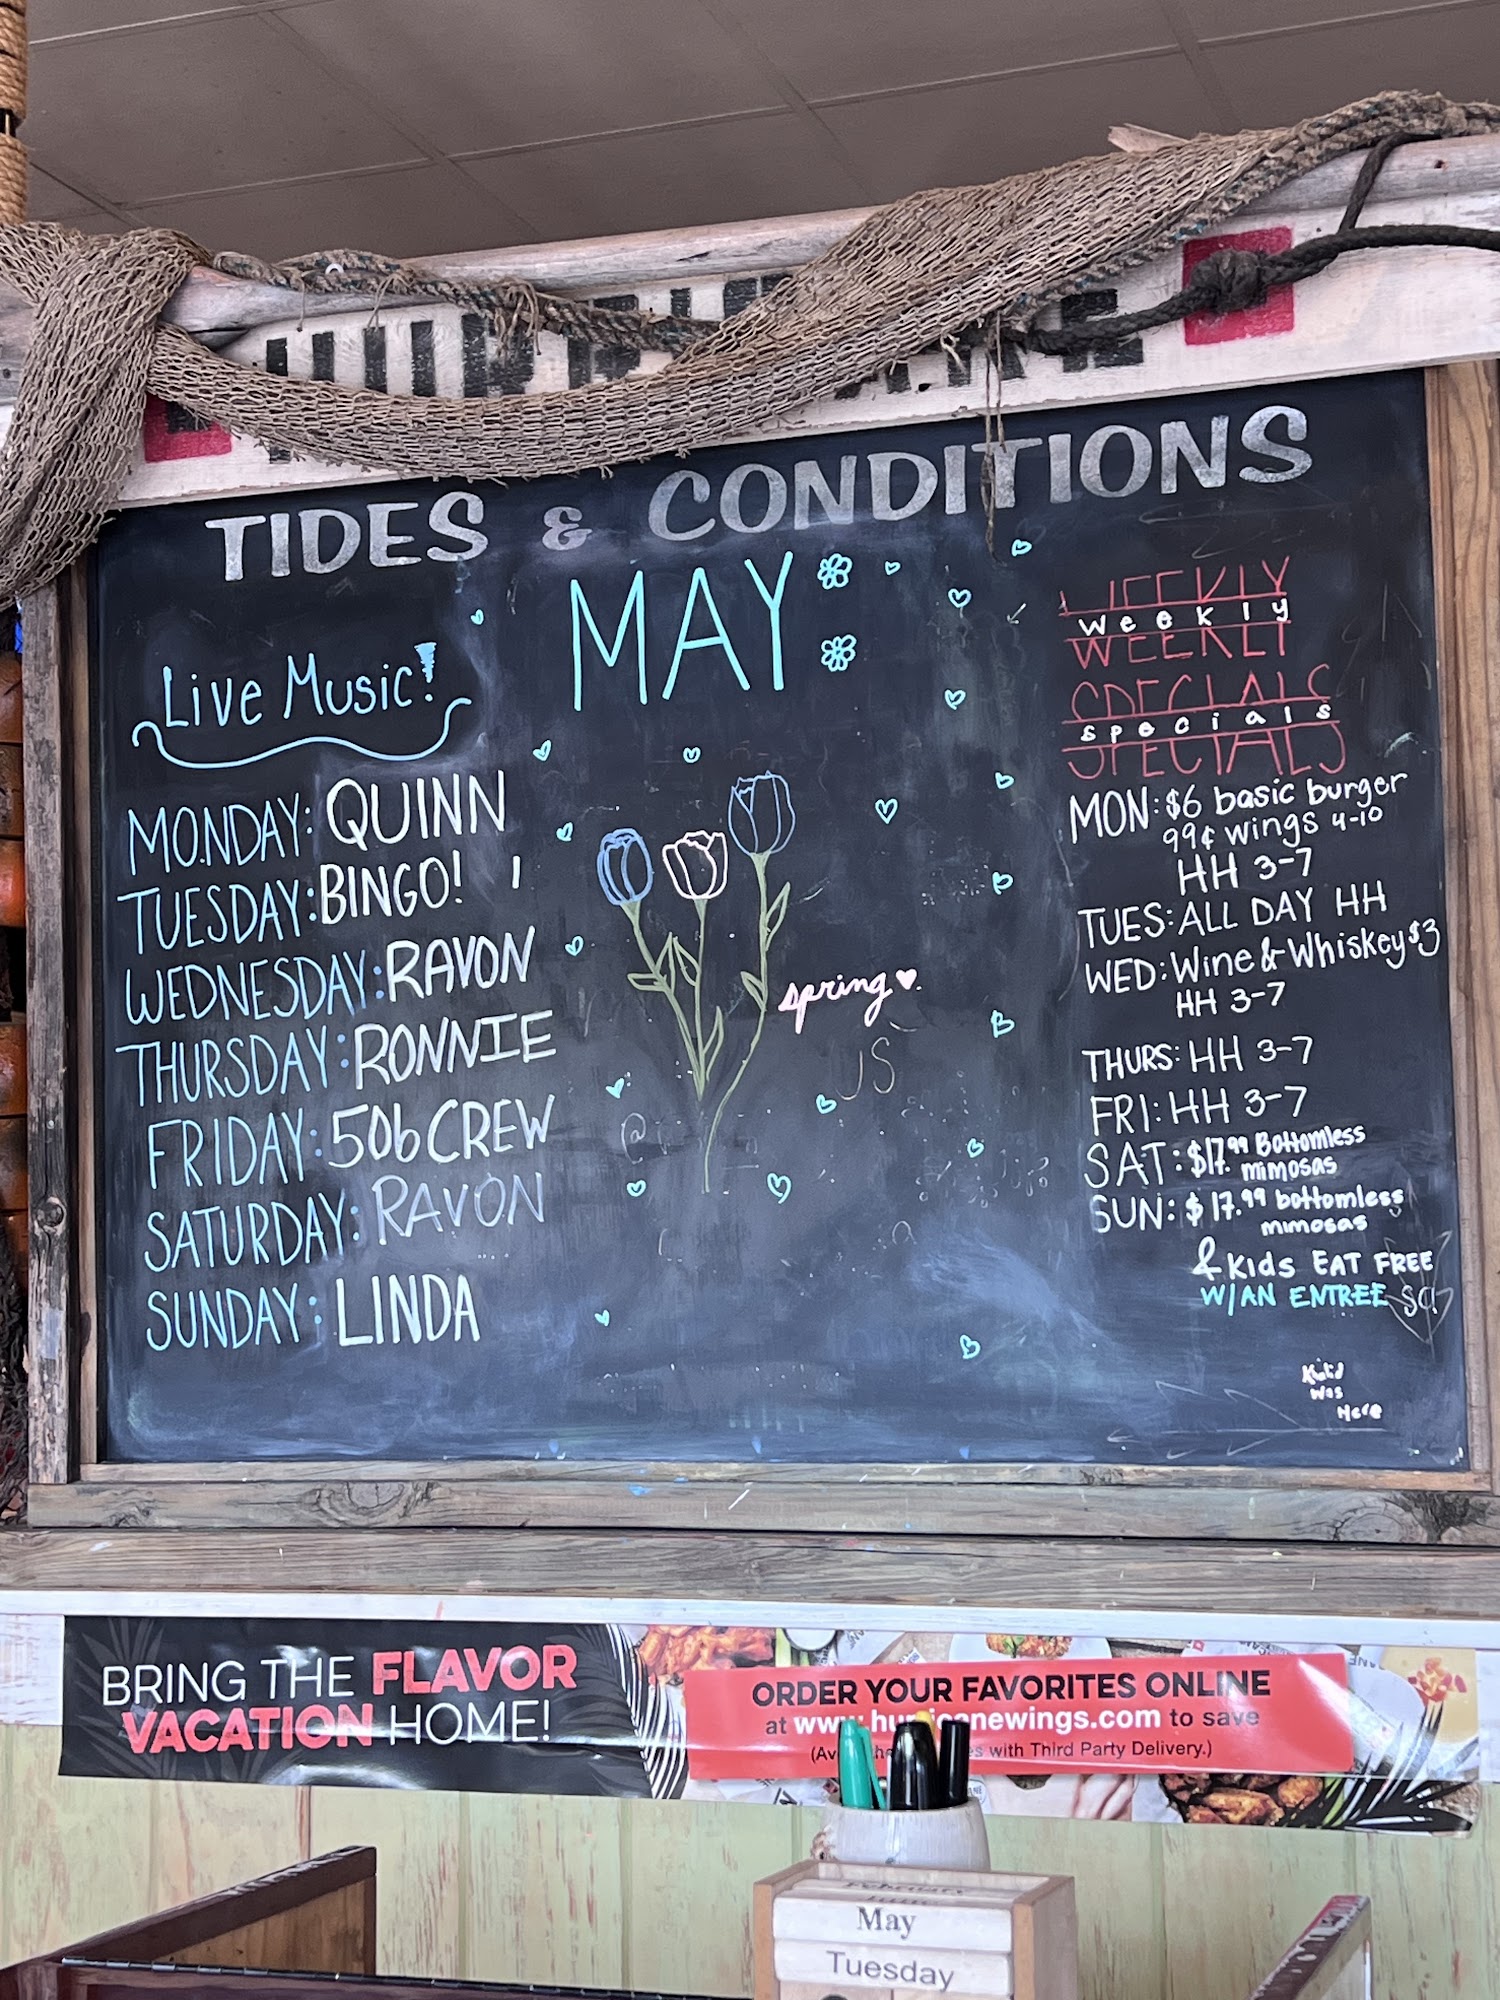 TIDES & CONDITIONS
MAY
Live Music!
MONDAY: QUINN
TUESDAY: BINGO!
WEDNESDAY: RAVON
THURSDAY: RONNIE
FRIDAY: 506 CREW
SATURDAY: RAVON
SUNDAY: LINDA
spring
JS
WEEKLY
Weekly
WEEKLY
SPECIALS
specials
SPECIALS
MON: $6 basic burger
99¢ wings 4-10
HH 3-7
TUES: ALL DAY HH
WED: Wine & Whiskey $3
HH 3-7
THURS: HH 3-7
FRI: HH 3-7
SAT: $17.99 Bottomless
mimosas
SUN: $17.99 bottomless
mimosas
& Kids EAT FREE
W/AN ENTREE
Was
Here
BRING THE FLAVOR
VACATION HOME!
ORDER YOUR FAVORITES ONLINE
at www.hurricanewings.com to save
with Third Party Delivery.)
February
May
Tuesday